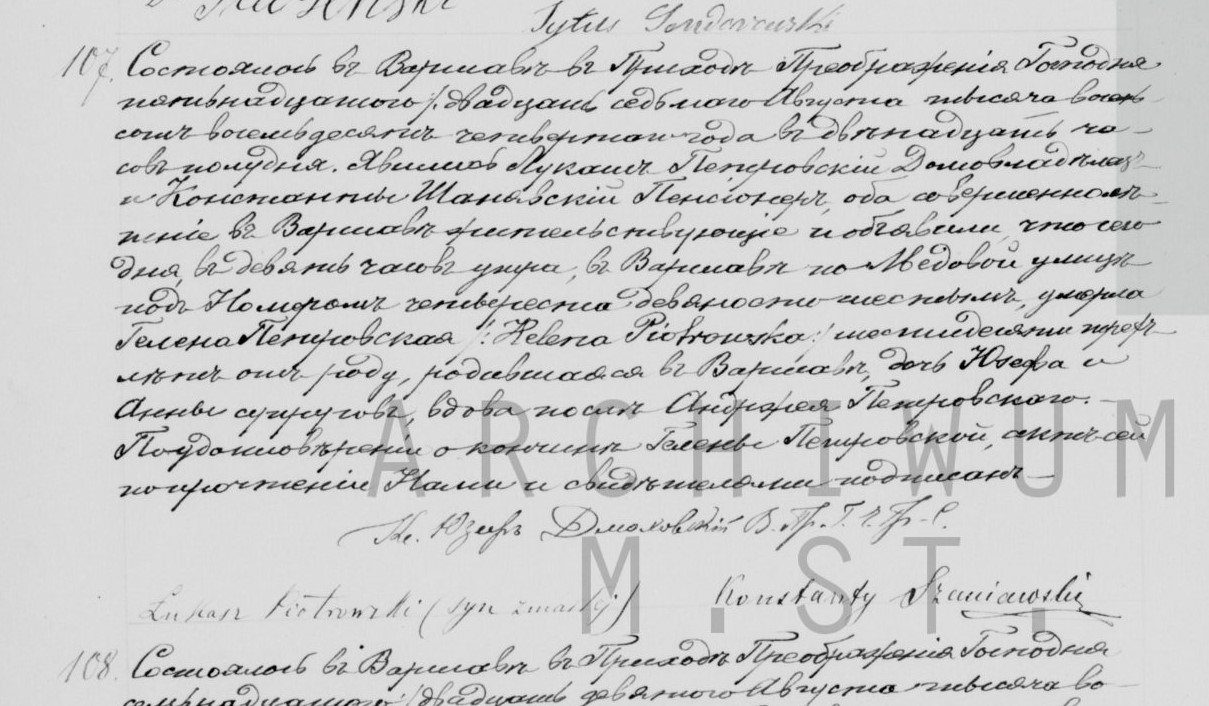 Tytus
107. Состоялось въ Варшавѣ въ Приходѣ Преображенія Господня
пятьнадцатого /: двадцать седьмаго Августа тысяча восемь-
сотъ восемьдесятъ четвертаго года въ двѣнадцать ча-
совъ полудня. Явились Лукашъ Петровскій Домовладѣлецъ
и Константы Шанявскій Пенсіонеръ, оба совершеннолѣ-
тніе въ Варшавѣ жительствующіе и объявили, что сего
дня, въ девять часовъ утра, въ Варшавѣ по Медовой улицѣ
подъ Номеромъ четыреста девяносто шестымъ, умерла
Гелена Петровская /: Helena Piotrowska :/ шестидесяти трехъ
лѣтъ отъ роду, родившаяся въ Варшавѣ, дочь Юзефа и
Анны супруговъ, вдова послѣ Андржея Петровскаго. -
По удостовѣреніи о кончинѣ Гелены Петровской, актъ сей
по прочтеніи Нами и свидѣтелями подписанъ —
Кс. Юзефъ Дмоховскій В. Пр. Г. Ч. Гр. С.
Łukasz Piotrowski (syn zmarłej) Konstanty Szaniawski
108. Состоялось въ Варшавѣ въ Приходѣ Преображенія Господня
семьнадцатого / двадцать девятого Августа тысяча во-
ARCHIWUM
M. ST.